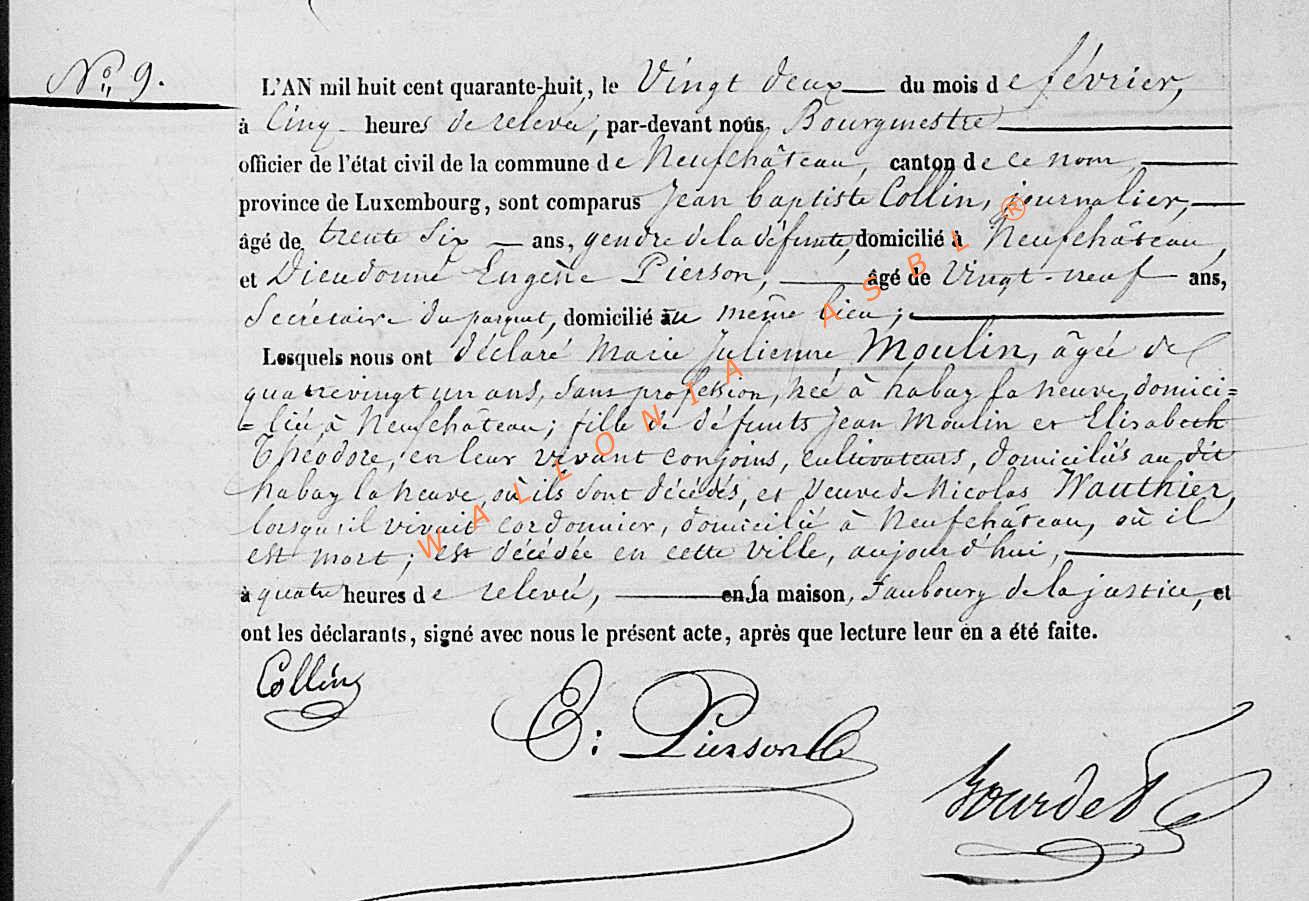 No. 9.
L'AN mil huit cent quarante-huit, le Vingt deux du mois de février,
à Cinq heures de relevée, par-devant nous, Bourgmestre
officier de l'état civil de la commune de Neufchâteau, canton de ce nom,
province de Luxembourg, sont comparus Jean Baptiste Collin, journalier,
âgé de trente Six ans, gendre de la défunte, domicilié à Neufchâteau,
et Dieudonné Eugène Pierson, âgé de Vingt-neuf ans,
Secrétaire du parquet, domicilié au même lieu;
Lesquels nous ont déclaré Marie Julienne Moulin, âgée de
quatrevingt un ans, Sans profession, née à habay la neuve, domici=
=liée à Neufchâteau; fille de défunts Jean Moulin et Elisabeth
Théodore, en leur vivant conjoins, cultivateurs, domiciliés au dit
habay la neuve, où ils sont décédés, et Veuve de Nicolas Wauthier,
lorsqu'il vivait cordonnier, domicilié à Neufchâteau, où il
est mort; est décédée en cette Ville, aujourd'hui,
à quatre heures de relevée, en la maison, Faubourg de la justice, et
ont les déclarants, signé avec nous le présent acte, après que lecture leur en a été faite.
Collin
E: Pierson
Bourdet
WALLONIA ASBL ®